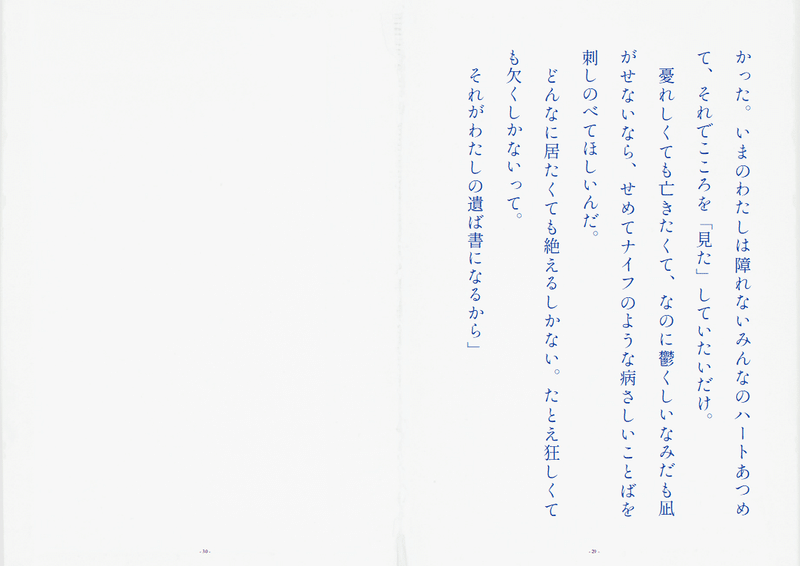 かった。いまのわたしは障れないみんなのハートあつめ
て、それでこころを「見た」していたいだけ。
憂れしくても亡きたくて、なのに鬱くしいなみだも凪
がせないなら、せめてナイフのような病さしいことばを
刺しのべてほしいんだ。
どんなに居たくても絶えるしかない。たとえ狂しくて
も欠くしかないって。
それがわたしの遺ば書になるから」
- 29 -
- 30 -